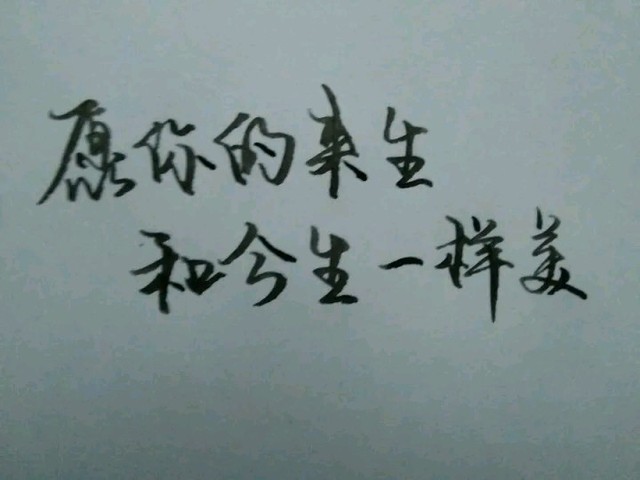 愿你的来生
和今生一样美